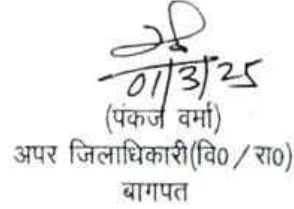 01/3/25
(पंकज वर्मा)
अपर जिलाधिकारी(वि0/रा0)
बागपत